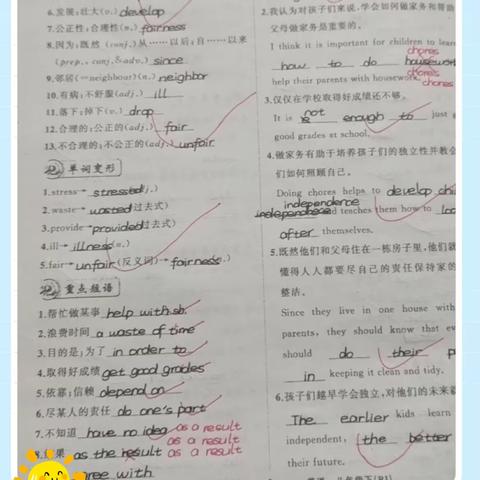 6.发展;壮大(v.) develop
7.公正性;合理性(n.) fairness
8.因为;既然 (conj.) 从……以后;自……以来
(prep., conj.&adv.) since
9.邻居(=neighbour)(n.) neighbor
10.有病;不舒服(adj.) ill
11.落下;掉下(v.) drop
12.合理的;公正的(adj.) fair
13.不合理的;不公正的(adj.) unfair
单词变形
1.stress→ stressed j.)
2.waste→ wasted 过去式)
3.provide→ provided 过去式)
4.ill→ illness (n.)
5.fair→ unfair (反义词)→ fairness .)
重点短语
1.帮忙做某事 help with sb.
2.浪费时间 a waste of time
3.目的是;为了 in order to
4.取得好成绩 get good grades
5.依靠;信赖 depend on
6.尽某人的责任 do one's part
7.不知道 have no idea as a result
as a result
8.结果 as the result as a result
ree with
2.我认为对孩子们来说,学会如何做家务和帮助
父母做家务是重要的。
I think it is important for children to learn
chores
how to do housework
chores
help their parents with housework. chores
3.仅仅在学校取得好成绩还不够。
not
It is enough to just
good grades at school.
4.做家务有助于培养孩子们的独立性并教会
们如何照顾自己。
Doing chores helps to develop chi
independence
independence and teaches them how to loo
after themselves.
5.既然他们和父母住在一栋房子里,他们就
懂得人人都要尽自己的责任保持家的
整洁。
Since they live in one house with
parents, they should know that ev
should do their p
in keeping it clean and tidy.
6.孩子们越早学会独立,对他们的未来
The earlier kids learn
independent, the better
their future.